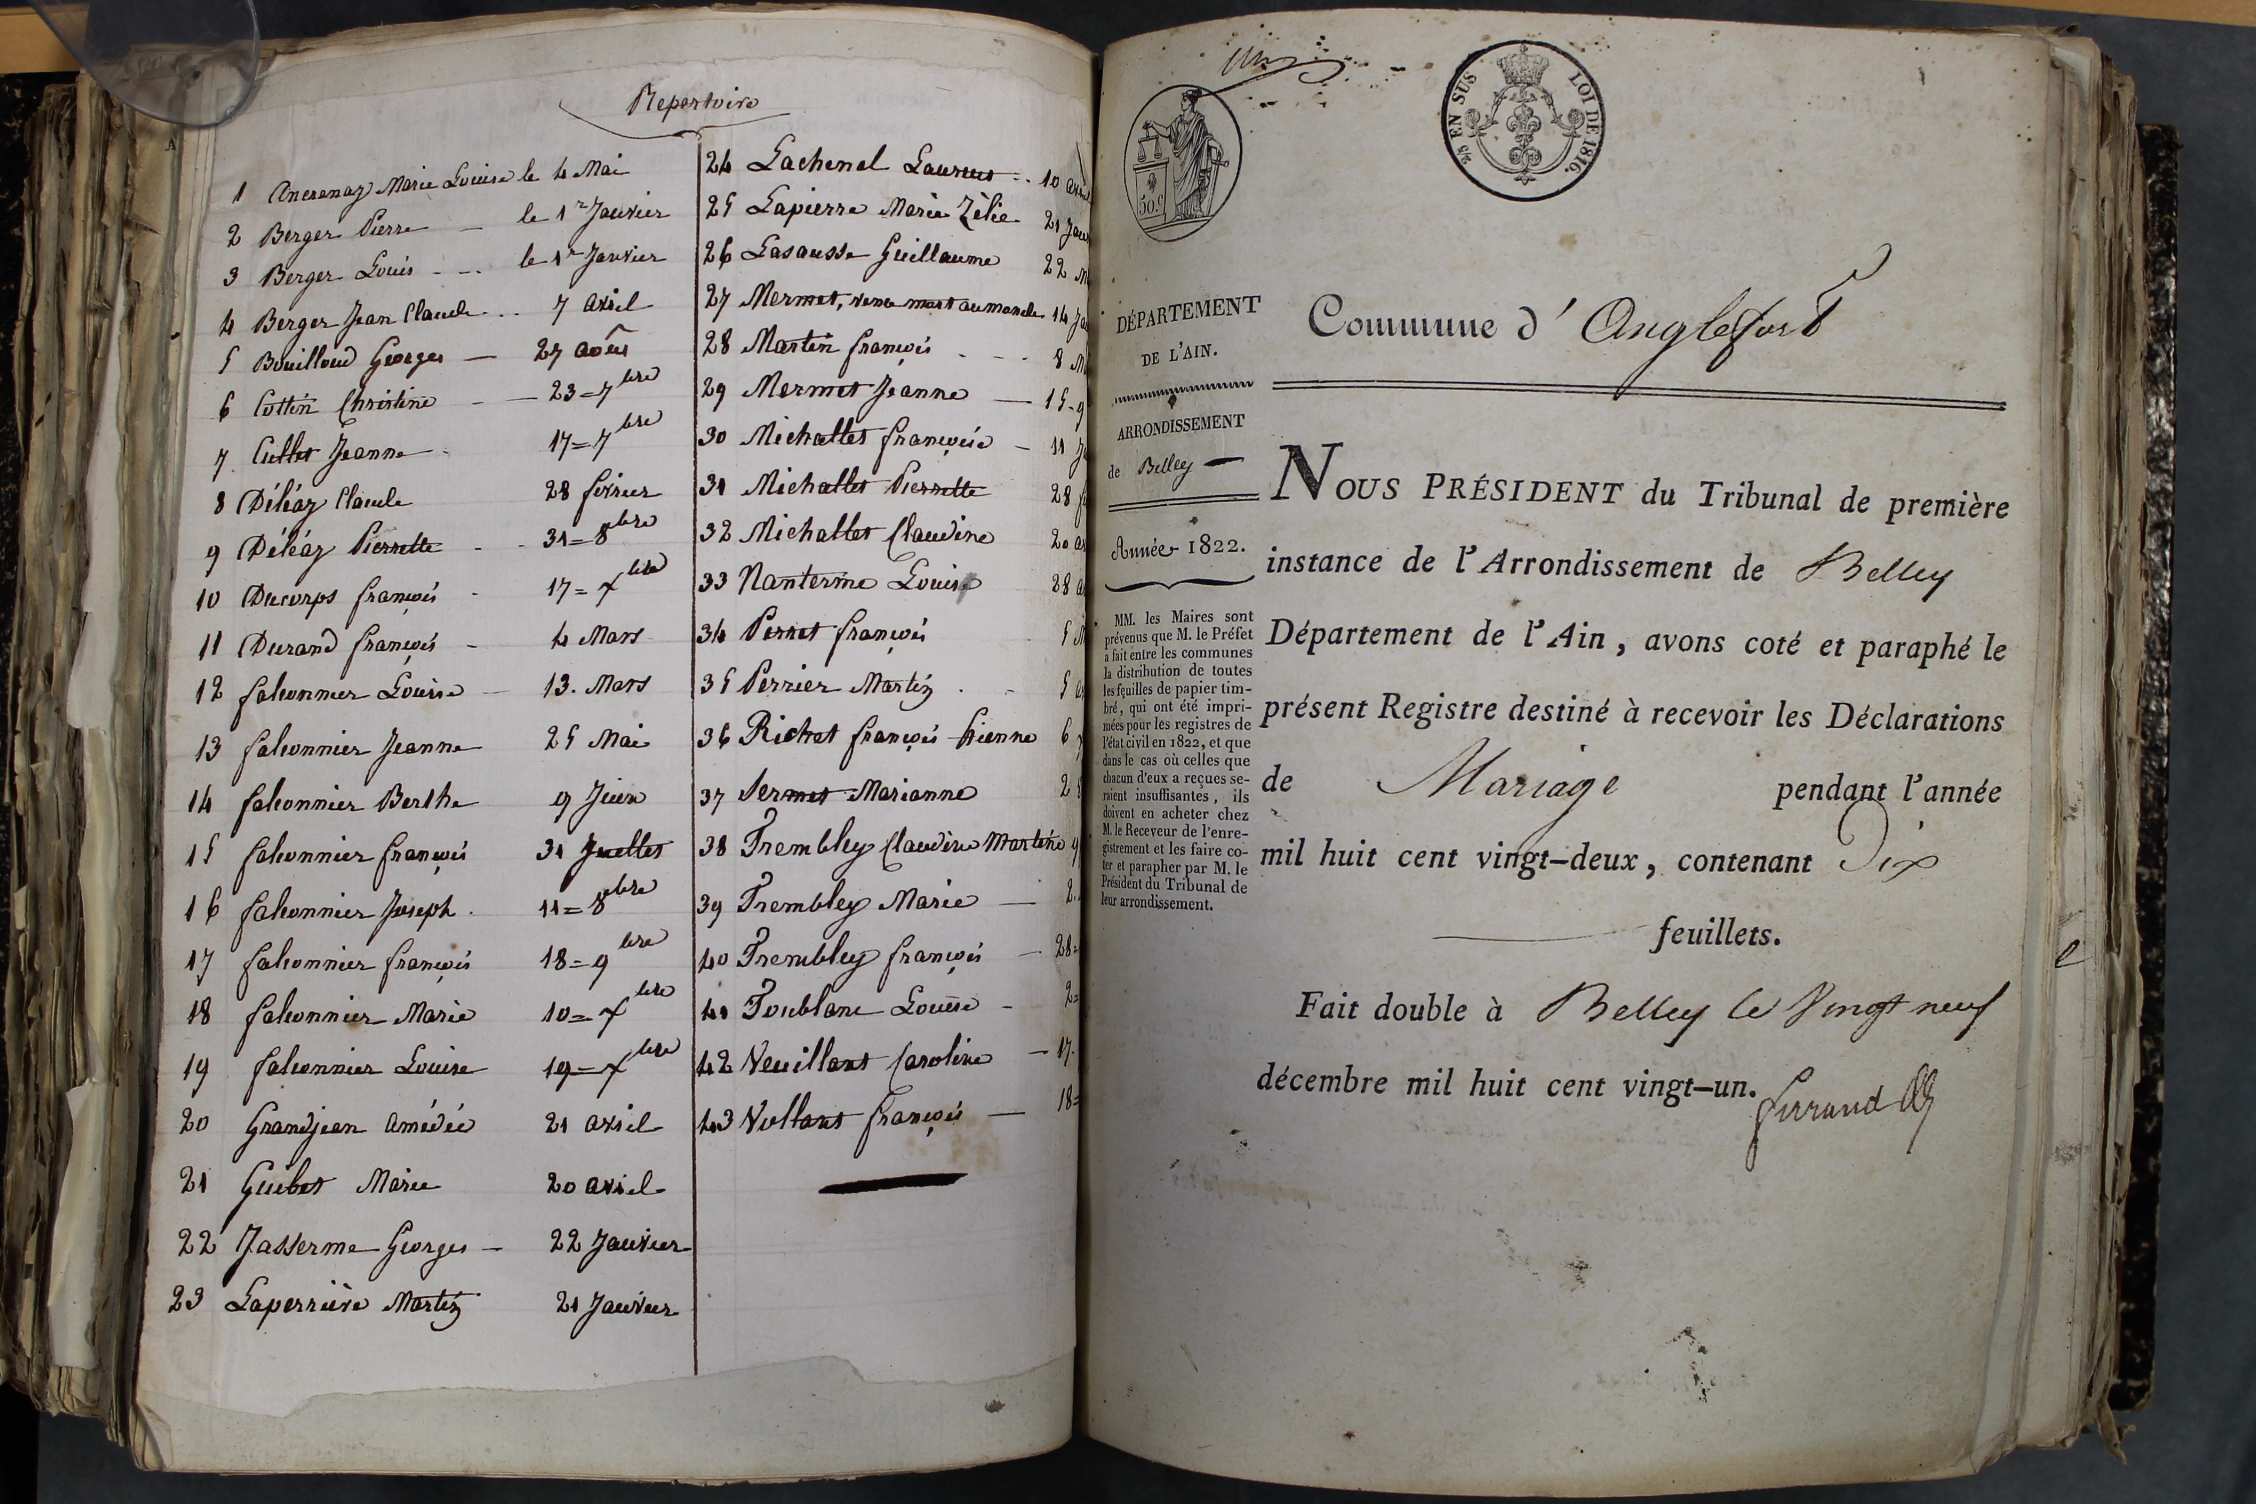 Repertoire
1 Ancrenaz Marie Louise le 4 Mai
2 Berger Pierre le 1er Janvier
3 Berger Louis le 1er Janvier
4 Berger Jean Claude 7 avril
5 Bouilloud Georges 27 août
6 Cottin Christine 23=7bre
7 Cullet Jeanne 17=7bre
8 Déléaz Claude 28 fevrier
9 Déléaz Pierrette 31=8bre
10 Ducorps françois 17=Xbre
11 Durand françois 4 Mars
12 falconnier Louise 13. Mars
13 falconnier Jeanne 25 Mai
14 falconnier Berthe 9 Juin
15 falconnier françois 31 Juellet
16 falconnier Joseph 11=8bre
17 falconnier françois 18=9bre
18 falconnier Marie 10=Xbre
19 falconnier Louise 19=Xbre
20 Grandjean Amédée 21 avril
21 Guibet Marie 20 avril
22 Jasserme Georges 22 Janvier
23 Laperrière Martin 21 Janvier
24 Lachenal Laurent 10 avril
25 Lapierre Marie Zèlie 21 Janv
26 Lasausse Guillaume 22 M
27 Mermet, venu mort au monde 14 Ja
28 Martin françois 8 M
29 Mermet Jeanne 15=9
30 Michallet françoise 11 J
31 Michallet Pierrette 28 f
32 Michallet Claudine 20 a
33 Nanterme Louise 28 a
34 Perret françois 5
35 Perrier Martin 5 a
36 Richet françois Etienne 6
37 Sermet Marianne 2
38 Trembley Claudine Martine 9
39 Trembley Marie 2
40 Trembley françois 28=
41 Toublanc Louise 2=
42 Veuillant Caroline 17
43 Vullant françois 18=
¾ EN SUS
LOI DE 1816.
50.c
DÉPARTEMENT
DE L'AIN.
ARRONDISSEMENT
de Belley
Année 1822.
MM. les Maires sont
prévenus que M. le Préfet
a fait entre les communes
la distribution de toutes
les feuilles de papier tim-
bré, qui ont été impri-
mées pour les registres de
l'état civil en 1822, et que
dans le cas où celles que
chacun d'eux a reçues se-
raient insuffisantes, ils
doivent en acheter chez
M. le Receveur de l'enre-
gistrement et les faire co-
ter et parapher par M. le
Président du Tribunal de
leur arrondissement.
Commune d'Anglefort
NOUS PRÉSIDENT du Tribunal de première
instance de l'Arrondissement de Belley
Département de l'Ain, avons coté et paraphé le
présent Registre destiné à recevoir les Déclarations
de Mariage pendant l'année
mil huit cent vingt-deux, contenant Dix
feuillets.
Fait double à Belley le Vingt neuf
décembre mil huit cent vingt-un.
Ferrand